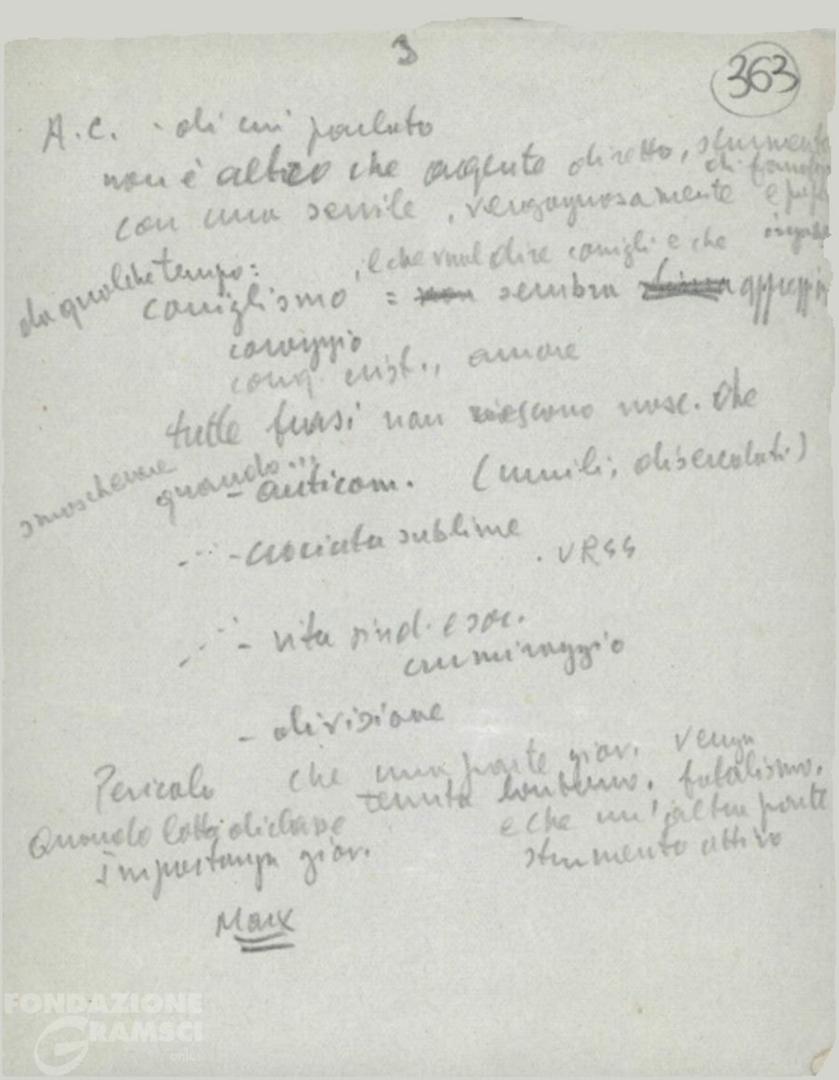 3
363
A.C. - di cui parlato
non è altro che agente diretto, strumento
con una servile, vergognosamente e
da qualche tempo: , il che vuol dire conigli e che
coniglismo = sembra
coraggio
conq. crist., amore
tutte frasi non riescono nasc. che
smascherare quando...
- anticom. (umili, diseredati)
- crociata sublime
. URSS
- vita sind. e soc.
crumiraggio
- divisione
Pericolo che una parte giov. venga
tenuta lontano, fatalismo.
Quando lotta di classe e che un'altra parte
importanza giov. strumento attivo
Marx
FONDAZIONE
GRAMSCI
onlus